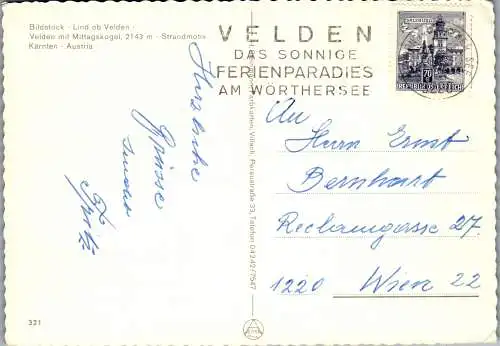 Bildstock - Lind ob Velden -
Velden mit Mittagskogel, 2143 m - Strandmotiv
Kärnten - Austria
VELDEN
DAS SONNIGE
FERIENPARADIES
AM WÖRTHERSEE
70
REPUBLIK ÖSTERREICH
Herzliche
Grüsse
An
Herrn Ernst
Bernhart
Reclamgasse 27
1220 Wien 22
Villach, Peraustraße 33, Telefon 04242/7547
321